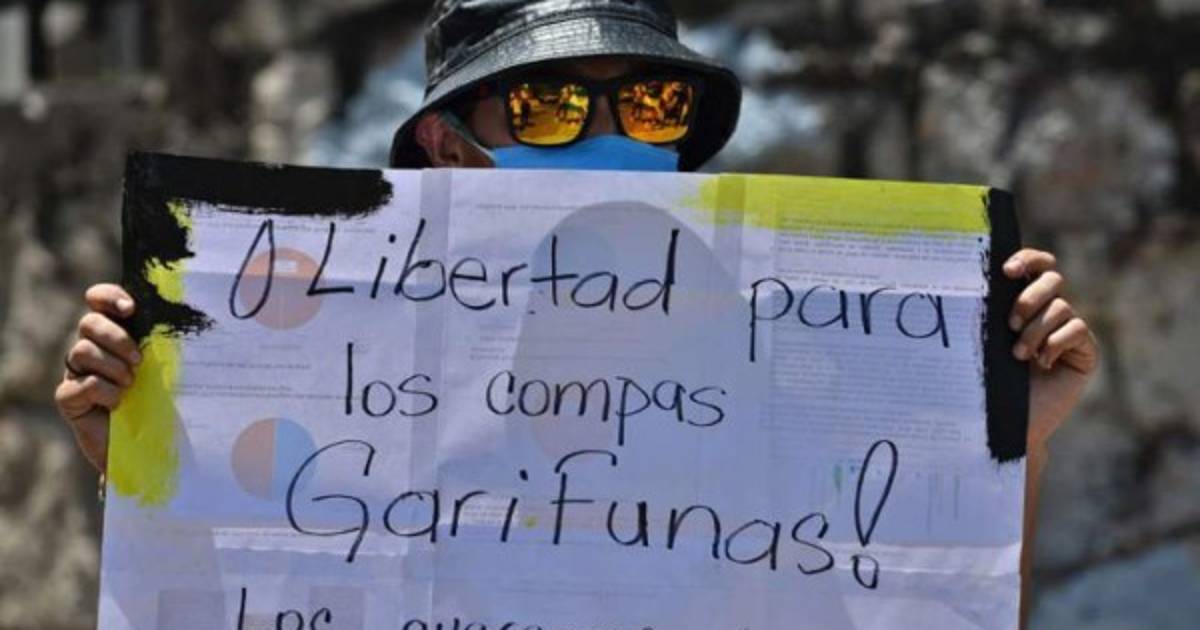 ¡Libertad para
los compas
Garifunas!
Los